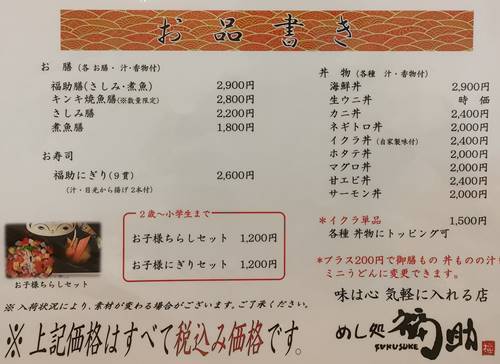 お品書き
お 膳 (各 お膳 ・ 汁・香物付)
福助膳(さしみ・煮魚) 2,900円
キンキ焼魚膳(※数量限定) 2,800円
さしみ膳 2,200円
煮魚膳 1,800円
お寿司
福助にぎり(9貫) 2,600円
(汁・目光から揚げ 2本付)
2歳~小学生まで
お子様ちらしセット 1,200円
お子様にぎりセット 1,200円
お子様ちらしセット
丼 物 (各種 汁・香物付)
海鮮丼 2,900円
生ウニ丼 時 価
カニ丼 2,400円
ネギトロ丼 2,000円
イクラ丼 (自家製味付) 2,400円
ホタテ丼 2,000円
マグロ丼 2,000円
甘エビ丼 2,400円
サーモン丼 2,000円
*イクラ単品 1,500円
各種 丼物にトッピング可
*プラス200円で御膳もの 丼ものの汁を
ミニうどんに変更できます。
※ 入荷状況により、素材が変わる場合がございます。ご了承ください。
※上記価格はすべて税込み価格です。
味は心 気軽に入れる店
めし処 福助
FUKUSUKE
福